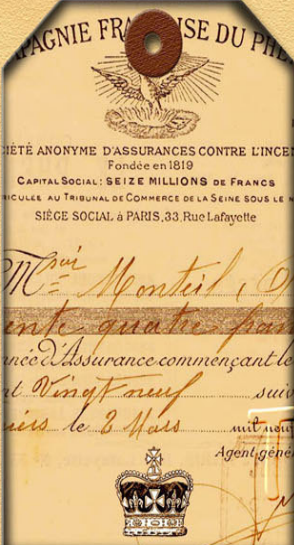 PAGNIE FRA ISE DU PHÉ
CIÉTÉ ANONYME D'ASSURANCES CONTRE L'INCEN
Fondée en 1819
CAPITAL SOCIAL: SEIZE MILLIONS DE FRANCS
RICULEE AU TRIBUNAL DE COMMERCE DE LA SEINE SOUS LE N
SIÈGE SOCIAL à PARIS, 33, Rue Lafayette
Monteil,
ente quatre fran
nnée d'Assurance commençant le
nt Vingt neuf suiv
iers le 2 Mars mil neuf
Agent géné